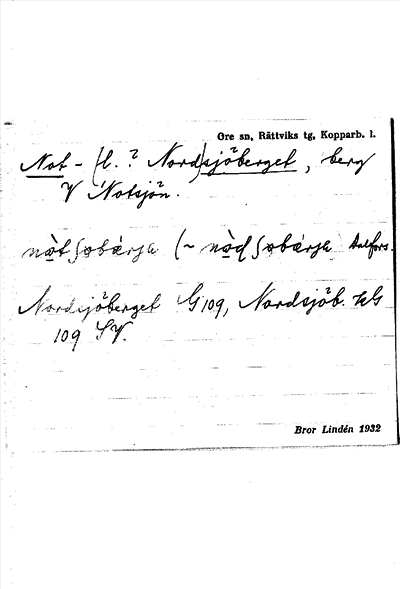 Ore sn, Rättviks tg, Kopparb. l.
Not- (l. ? Nord)sjöberget, berg
V Notsjön.
nòtʃøbærja (~ nòdʃøbærja Dalfors.
Nordsjöberget G 109, Nordsjöb.
109 SV.
Bror Lindén 1932